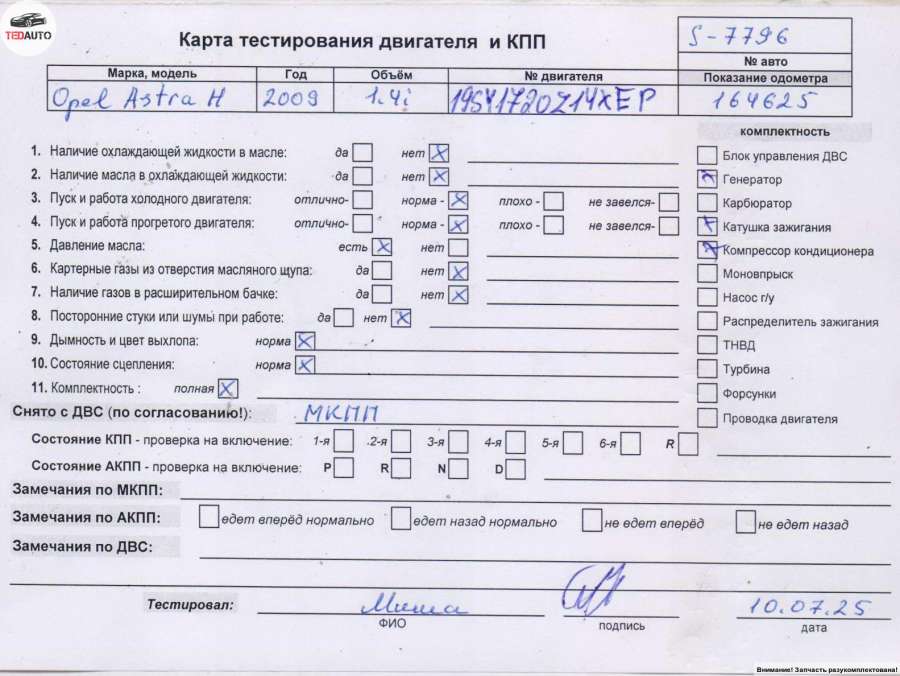 TEDAUTO
Карта тестирования двигателя и КПП
S-7796
№ авто
Марка, модель Год Объём № двигателя Показание одометра
Opel Astra H 2009 1.4i 19SY1720Z14XEP 164625
комплектность
1. Наличие охлаждающей жидкости в масле: да нет X
Блок управления ДВС
2. Наличие масла в охлаждающей жидкости: да нет X
Генератор X
3. Пуск и работа холодного двигателя: отлично- норма - X плохо - не завелся-
Карбюратор
4. Пуск и работа прогретого двигателя: отлично- норма - X плохо - не завелся-
Катушка зажигания X
5. Давление масла: есть X нет
Компрессор кондиционера X
6. Картерные газы из отверстия масляного щупа: да нет X
Моновпрыск
7. Наличие газов в расширительном бачке: да нет X
Насос г/у
8. Посторонние стуки или шумы при работе: да нет X
Распределитель зажигания
9. Дымность и цвет выхлопа: норма X
ТНВД
10. Состояние сцепления: норма X
Турбина
11. Комплектность : полная X
Форсунки
Снято с ДВС (по согласованию!): МКПП
Проводка двигателя
Состояние КПП - проверка на включение: 1-я 2-я 3-я 4-я 5-я 6-я R
Состояние АКПП - проверка на включение: P R N D
Замечания по МКПП:
Замечания по АКПП: едет вперёд нормально едет назад нормально не едет вперёд не едет назад
Замечания по ДВС:
Тестировал: Миша 10.07.25
ФИО подпись дата
Внимание! Запчасть разукомплектована!